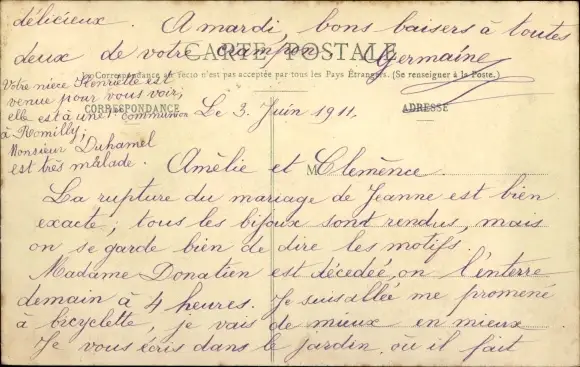 délicieux. A mardi, bons baisers à toutes
deux de votre crampon. Germaine
CARTE POSTALE
La Correspondance au recto n'est pas acceptée par tous les Pays Étrangers. (Se renseigner à la Poste.)
CORRESPONDANCE
ADRESSE
Votre nièce Henriette est
venue pour vous voir,
elle est à une 1re communion
à Romilly;
Monsieur Duhamel
est très mâlade.
Le 3 Juin 1911.
M
Amèlie et Clemènce.
La rupture du mariage de Jeanne est bien
exacte; tous les bijoux sont rendus, mais
on se garde bien de dire les motifs.
Madame Donatien est décedeé, on l'enterre
demain à 4 heures. Je suis allée me promené
à bicyclette, je vais de mieux en mieux
Je vous écris dans le jardin où il fait